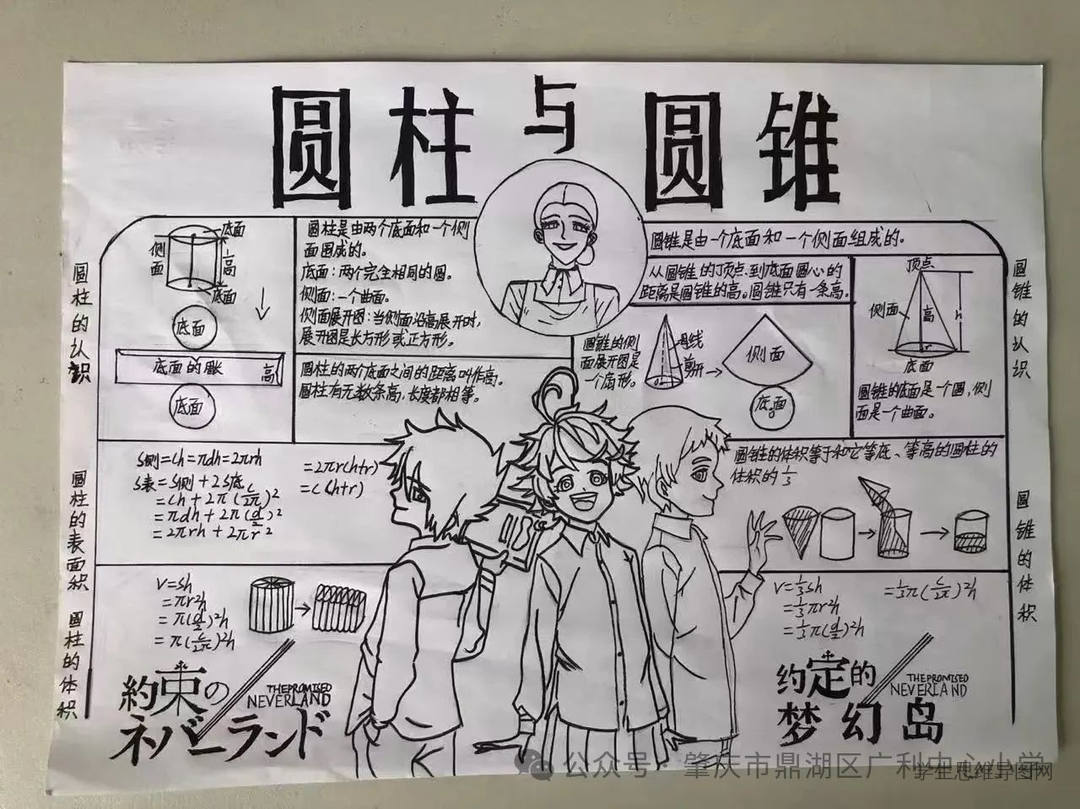 圆柱与圆锥
圆柱的认识
侧面
底面
高
底面
底面
底面的周长
高
底面
圆柱是由两个底面和一个侧
面围成的。
底面：两个完全相同的圆。
侧面：一个曲面。
侧面展开图：当侧面沿高展开时，
展开图是长方形或正方形。
圆柱的两个底面之间的距离叫作高。
圆柱有无数条高，长度都相等。
圆锥是由一个底面和一个侧面组成的。
从圆锥的顶点到底面圆心的
距离是圆锥的高。圆锥只有一条高。
圆锥的侧
面展开图是
一个扇形。
母线
剪开
侧面
底面
顶点
侧面
高
h
底面
圆锥的底面是一个圆，侧
面是一个曲面。
圆锥的认识
圆柱的表面积
S侧=Ch=πdh=2πrh
S表=S侧+2S底
=Ch+2π(C/2π)²
=πdh+2π(d/2)²
=2πrh+2πr²
=2πr(h+r)
=C(h+r)
圆锥的体积等于和它等底、等高的圆柱的
体积的1/3
圆锥的体积
圆柱的体积
V=Sh
=πr²h
=π(d/2)²h
=π(C/2π)²h
V=1/3Sh
=1/3πr²h
=1/3π(d/2)²h
=1/3π(C/2π)²h
約束の
ネバーランド
THE PROMISED
NEVERLAND
约定的
梦幻岛
THE PROMISED
NEVERLAND
公众号·肇庆市鼎湖区广利中心小学
学生思维导图网